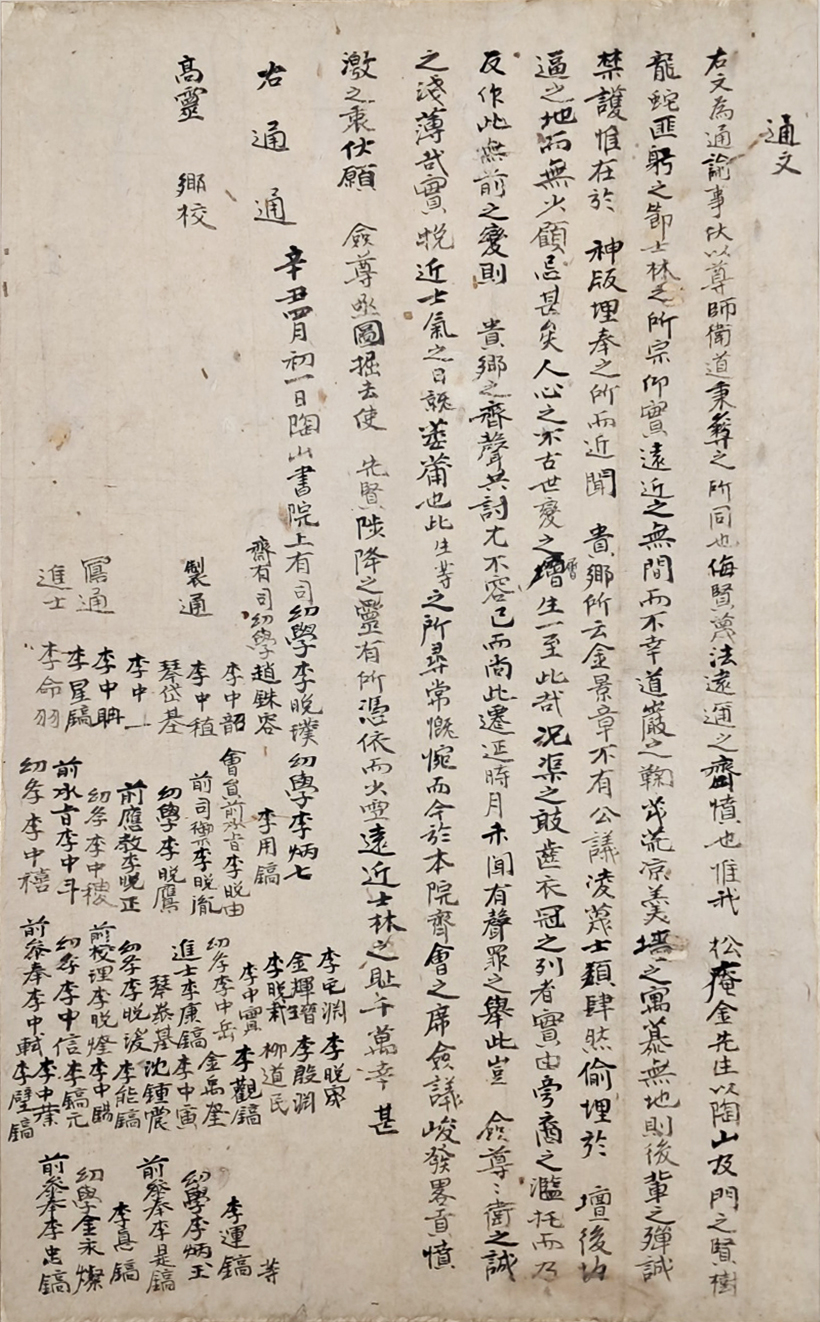 通文
右文為通諭事伏以尊師衛道秉彝之所同也侮賢蔑法遠邇之齊憤也惟我 松庵金先生以陶山及門之賢樹
龍蛇匪躬之節士林之所宗仰實遠近之無間而不幸道巖之鞠茂荒凉羹墻之寓慕無地則後輩之殫誠
禁護惟在於 神版埋奉之所而近聞 貴鄉所云金景章不有公議凌蔑士類肆然偷埋於 壇後
逼之地而無少顧忌甚矣人心之不古世變之層生一至此哉況渠之敢齒衣冠之列者實由旁裔之濫托而乃
反作此無前之變則 貴鄉之齊聲共討尤不容已而尚此遷延時月未聞有聲罪之舉此豈 僉尊衛之誠
之淺薄哉實晩近士氣之日就萎薾也此生等之所尋常慨惋而今於本院齊會之席僉議峻發畧貢憤
激之衷伏願 僉尊亟圖掘去使 先賢陟降之靈有所憑依而少雪遠近士林之耻千萬幸甚
右通通
高靈 鄉校
辛丑四月初一日陶山書院上有司幼學李晩璞 幼學李炳七
齋有司幼學趙銖容
製通
李中韶
李中稙
琴岱基
李中一
寫通
李中冉
李星鎬
進士 李命羽
李用鎬
會員前承旨李晩由
前司禦李晩胤
幼學李晩鷹
前應教李晩正
幼學李中稷
前承旨李中斗
幼學李中禧
李宅淵 李晩家
金輝瓚 李殷淵
李晩栽 柳道民
李中實 李觀鎬
幼學李中岳 金禹奎
進士李康鎬 李中寅
琴基 沈鍾震
幼學李晩淩 李能鎬
前校理李晩煃 李中暘
幼學李中信 李鎬元
前參奉李中軾 李中葉
李璧鎬
李運鎬 等
幼學李炳玉
前參奉李是鎬
李憙鎬
幼學金永燦
前參奉李忠鎬